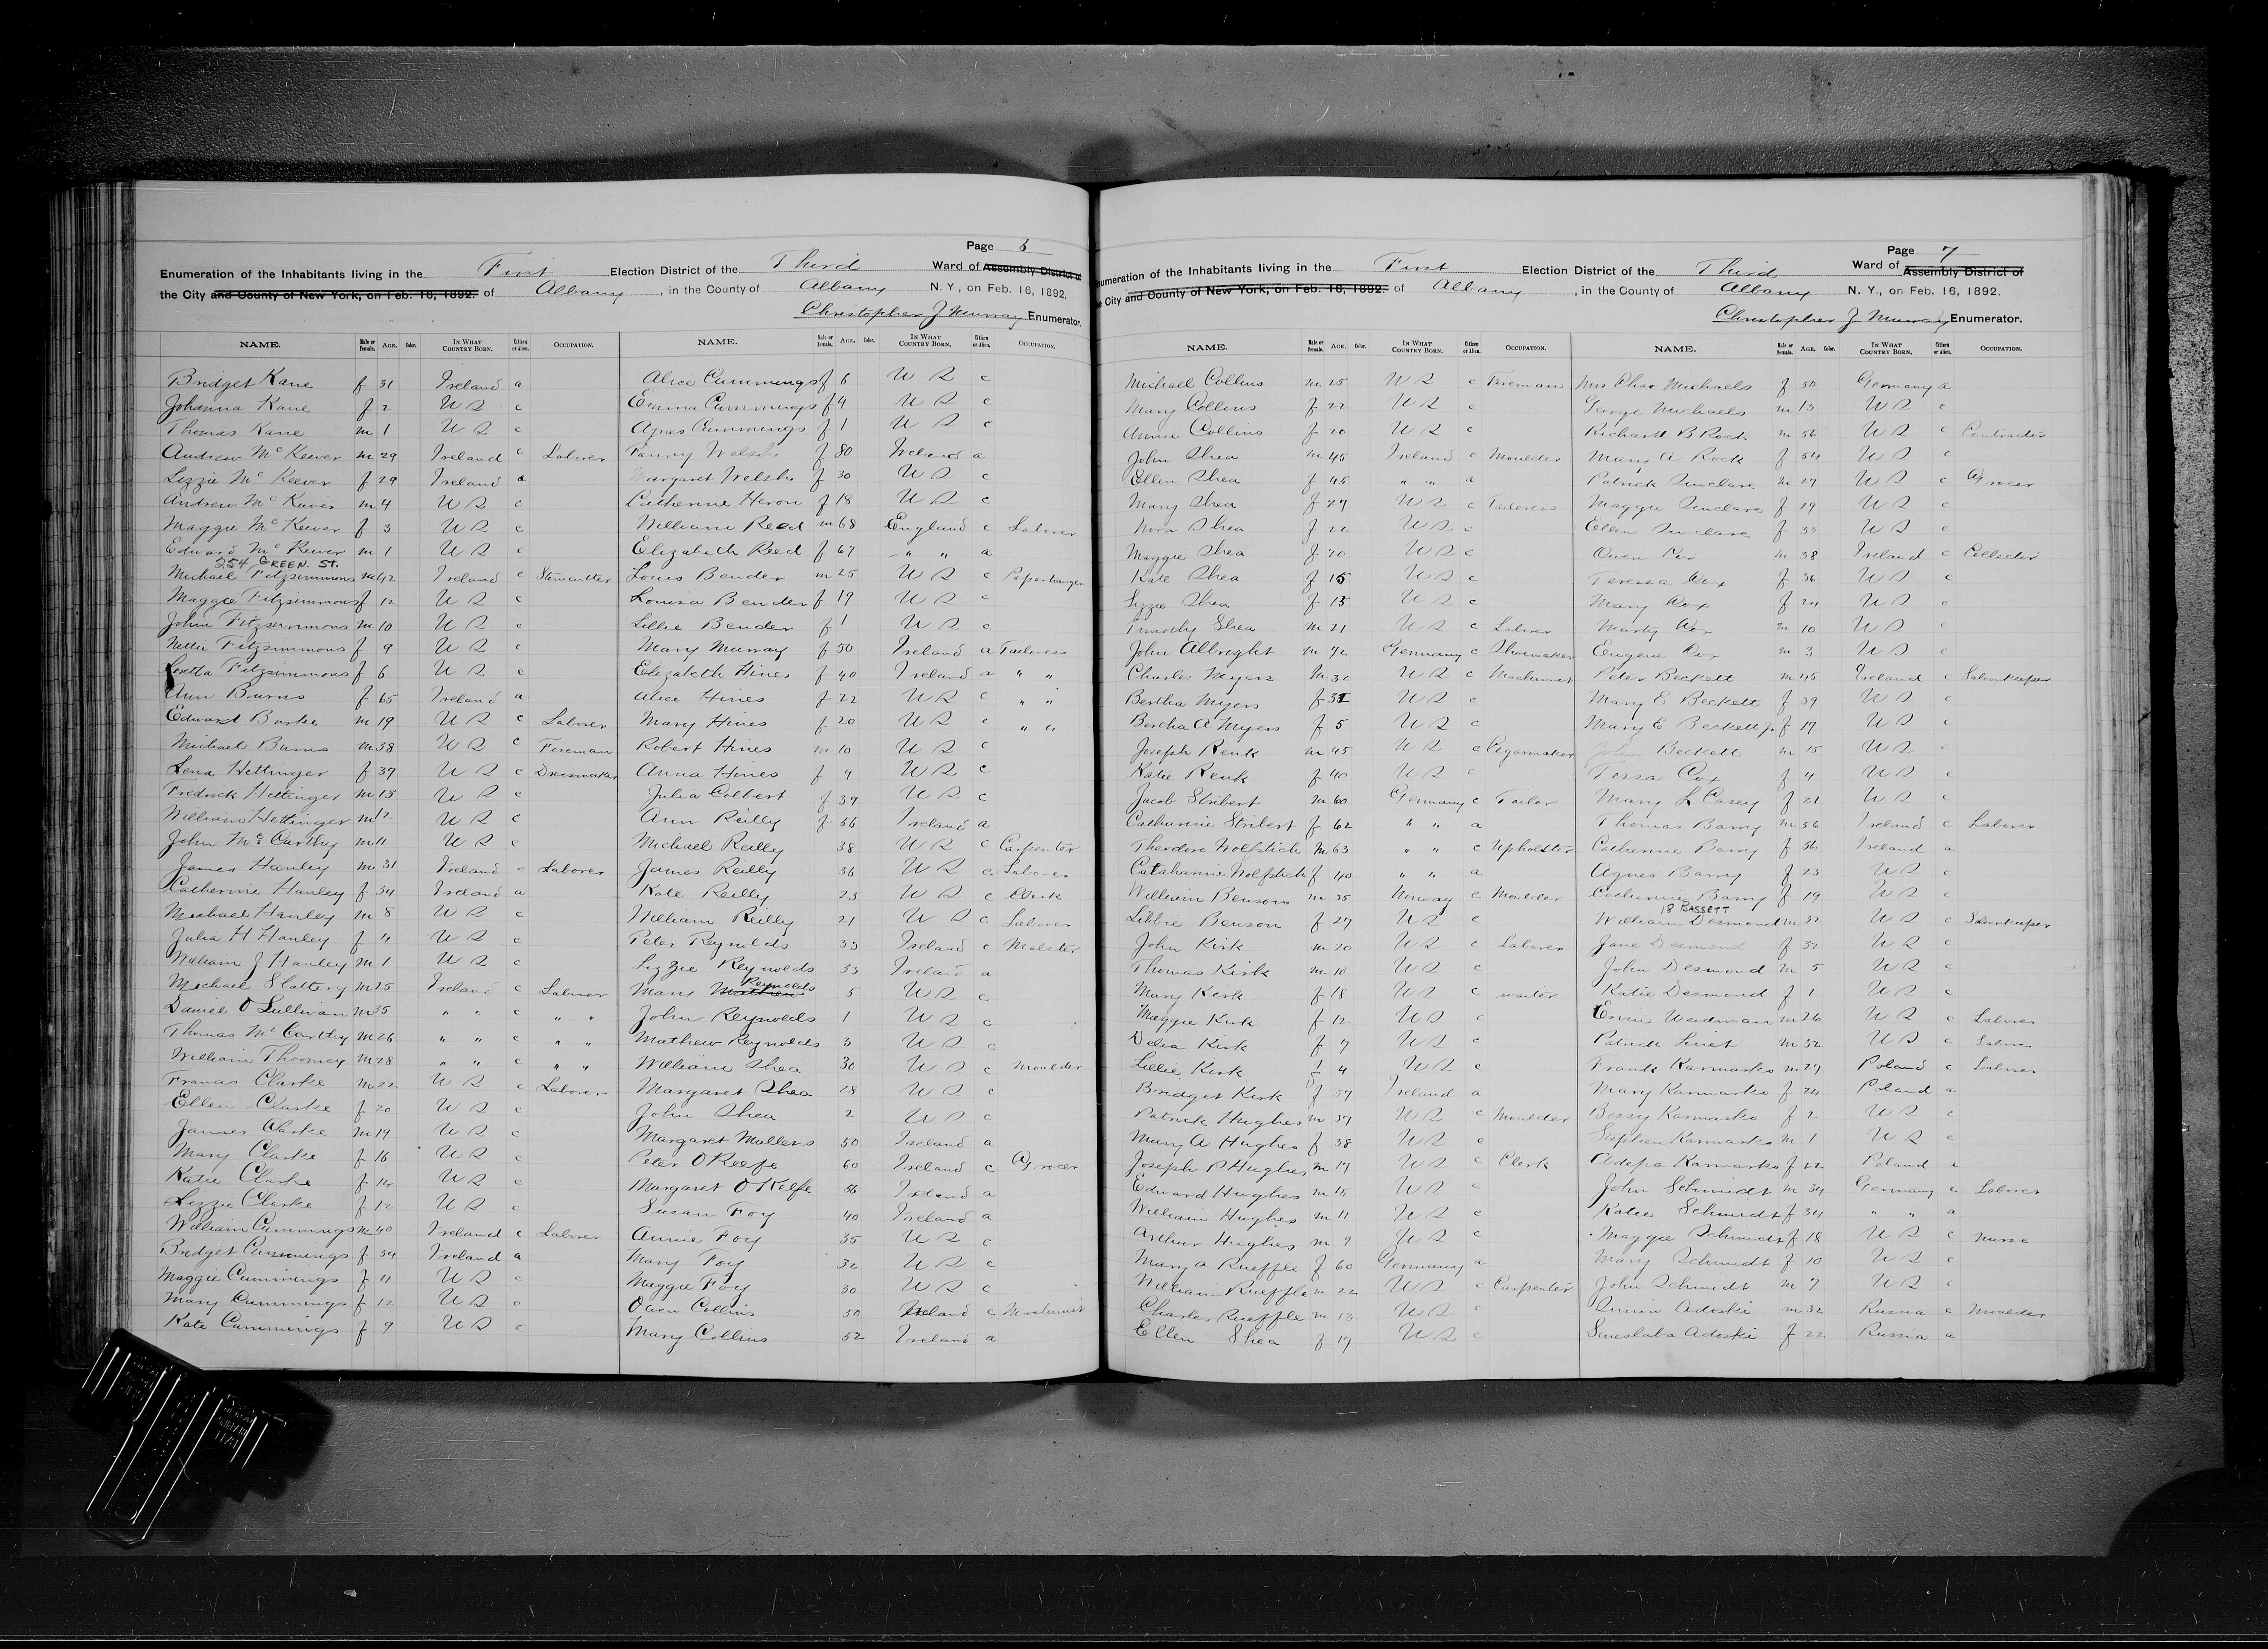 Page 6
Enumeration of the Inhabitants living in the First Election District of the Third Ward of Assembly District of
the City and County of New York, on Feb. 16, 1892. of Albany, in the County of Albany N. Y., on Feb. 16, 1892.
Christopher J Murray Enumerator.
NAME. Male or Female. AGE. Color. IN WHAT COUNTRY BORN. Citizen or Alien. OCCUPATION.
Bridget Kane f 31 Ireland a
Johanna Kane f 2 U S c
Thomas Kane m 1 U S c
Andrew McKeever m 29 Ireland c Laborer
Lizzie McKeever f 29 Ireland a
Andrew McKeever m 4 U S c
Maggie McKeever f 3 U S c
Edward McKeever m 1 U S c
254 GREEN. ST.
Michael Fitzsimmons m 42 Ireland c Stonecutter
Maggie Fitzsimmons f 12 U S c
John Fitzsimmons m 10 U S c
Nettie Fitzsimmons f 9 U S c
Loretta Fitzsimmons f 6 U S c
Ann Burns f 65 Ireland a
Edward Burke m 19 U S c Laborer
Michael Burns m 38 U S c Fireman
Lena Hettinger f 37 U S c Dressmaker
Fredrick Hettinger m 13 U S c
William Hettinger m 12 U S c
John McCarthy m 11 U S c
James Hanley m 31 Ireland c Laborer
Catherine Hanley f 34 Ireland a
Michael Hanley m 8 U S c
Julia H Hanley f 4 U S c
William J Hanley m 1 U S c
Michael Slattery m 25 Ireland c Laborer
Daniel O Sullivan m 35 " " c " "
Thomas McCarthy m 26 " " c " "
William Thoomey m 28 " " c " "
Francis Clarke m 22 U S c Laborer
Ellen Clarke f 20 U S c
James Clarke m 19 U S c
Mary Clarke f 16 U S c
Katie Clarke f 14 U S c
Lizzie Clarke f 12 U S c
William Cummings m 40 Ireland c Laborer
Bridget Cummings f 34 Ireland a
Maggie Cummings f 11 U S c
Mary Cummings f 12 U S c
Kate Cummings f 9 U S c
NAME. Male or Female. AGE. Color. IN WHAT COUNTRY BORN. Citizen or Alien. OCCUPATION.
Alice Cummings f 6 U S c
Emma Cummings f 4 U S c
Agnes Cummings f 1 U S c
Fanny Welsh f 80 Ireland a
Margaret Welsh f 30 U S c
Catherine Heron f 18 U S c
William Reed m 68 England c Laborer
Elizabeth Reed f 67 " " a
Louis Bender m 25 U S c Paperhanger
Louisa Bender f 19 U S c
Lillie Bender f 1 U S c
Mary Murray f 50 Ireland a Tailoress
Elizabeth Hines f 40 Ireland a " "
Alice Hines f 22 U S c " "
Mary Hines f 20 U S c " "
Robert Hines m 10 U S c
Anna Hines f 9 U S c
Julia Colbert f 39 U S c
Ann Reilly f 66 Ireland a
Michael Reilly 38 U S c Carpenter
James Reilly 36 U S c Laborer
Kate Reilly 23 U S c Clerk
William Reilly 21 U S c Laborer
Peter Reynolds 33 Ireland c Malster
Lizzie Reynolds 33 Ireland a
Mary Mathew Reynolds 5 U S c
John Reynolds 1 U S c
Mathew Reynolds 3 U S c
William Shea 30 U S c Moulder
Margaret Shea 28 U S c
John Shea 2 U S c
Margaret Mullers 50 Ireland a
Peter O'Keefe 60 Ireland c Grocer
Margaret O Keefe 56 Ireland a
Susan Foy 40 Ireland a
Annie Foy 35 U S c
Mary Foy 32 U S c
Maggie Foy 30 U S c
Owen Collins 50 Ireland c Machinist
Mary Collins 52 Ireland a
Page 7
Enumeration of the Inhabitants living in the First Election District of the Third Ward of Assembly District of
the City and County of New York, on Feb. 16, 1892. of Albany, in the County of Albany N. Y., on Feb. 16, 1892.
Christopher J Murray Enumerator.
NAME. Male or Female. AGE. Color. IN WHAT COUNTRY BORN. Citizen or Alien. OCCUPATION.
Michael Collins m 25 U S c Fireman
Mary Collins f 22 U S c
Annie Collins f 20 U S c
John Shea m 45 Ireland c Moulder
Ellen Shea f 45 " " a
Mary Shea f 24 U S c Tailoress
Nora Shea f 22 U S c
Maggie Shea f 20 U S c
Kate Shea f 15 U S c
Lizzie Shea f 13 U S c
Timothy Shea m 21 U S c Laborer
John Albright m 42 Germany c Shoemaker
Charles Meyers m 32 U S c Machinist
Bertha Myers f 31 U S c
Bertha A Myers f 5 U S c
Joseph Renk m 45 U S c Cigarmaker
Katie Renk f 40 U S c
Jacob Stribert m 60 Germany c Tailor
Catharine Stribert f 62 " " a
Theodore Wolfstich m 63 " " c Upholster
Catahanie Wolfstich f 40 " " a
William Benson m 35 Norway c Moulder
Libbie Benson f 27 U S c
John Kirk m 20 U S c Laborer
Thomas Kirk m 10 U S c
Mary Kirk f 18 U S c waiter
Maggie Kirk f 12 U S c
Delia Kirk f 7 U S c
Lillie Kirk f 4 U S c
Bridget Kirk f 37 Ireland a
Patrick Hughes m 37 U S c Moulder
Mary A Hughes f 38 U S c
Joseph P Hughes m 17 U S c Clerk
Edward Hughes m 15 U S c
William Hughes m 11 U S c
Arthur Hughes m 9 U S c
Mary A Rueffle f 60 Germany a
William Rueffle m 22 U S c Carpenter
Charles Rueffle m 13 U S c
Ellen Shea f 17 U S c
NAME. Male or Female. AGE. Color. IN WHAT COUNTRY BORN. Citizen or Alien. OCCUPATION.
Mrs Chas Michaels f 50 Germany a
George Michaels m 13 U S c
Richard B Rock m 56 U S c Contractor
Mary A Rock f 54 U S c
Patrick Sinclare m 27 U S c Grocer
Maggie Sinclare f 29 U S c
Ellen Sinclare f 35 U S c
Owen Cox m 38 Ireland c Collector
Teressa Cox f 36 U S c
Mary Cox f 24 U S c
Marty Cox m 10 U S c
Eugene Cox m 3 U S c
Peter Beckett m 45 Ireland c Saloonkeeper
Mary E Beckett f 39 U S c
Mary E Beckett Jr f 17 U S c
John Beckett m 15 U S c
Tessa Cox f 4 U S c
Mary L Casey f 21 U S c
Thomas Barry m 56 Ireland c Laborer
Catherine Barry f 56 Ireland a
Agnes Barry f 23 U S c
Catherine Barry f 19 U S c
18 BASSETT
William Desmond m 32 U S c Saloonkeeper
Jane Desmond f 32 U S c
John Desmond m 5 U S c
Katie Desmond f 1 U S c
Ervin Weidman m 26 U S c Laborer
Patrick m 32 U S c Laborer
Frank Karmarko m 27 Poland c Laborer
Mary Karmarko f 24 Poland a
Bessy Karmarko f 2 U S c
Stephen Karmarko m 1 U S c
Karmarko f 22 Poland a
John Schmidt m 34 Germany c Laborer
Katie Schmidt f 34 " " a
Maggie Schmidt f 18 U S c Nurse
Mary Schmidt f 10 U S c
John Schmidt m 7 U S c
Adoski m 32 Russia c Moulder
Adoski f 22 Russia a